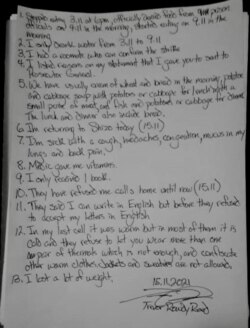 1. Stopped eating 3.11 at 6pm, officially denied food from prison
officials on 4.11 in the morning, started eating on 9.11 in the
morning
2. I only drank water from 3.11 to 9.11
3. I had a cellmate who can confirm the strike
4. I listed reasons on my statement that I gave you to sent to
Prosecutor General.
5. We have usually cream of wheat and bread in the morning, potato
and cabbage soup with potatoes or cabbage for lunch with a
small piece of meat, and fish and potatoes or cabbage for dinner.
The lunch and dinner also include bread.
6. I'm returning to Shizo today (15.11)
7. I'm sick with a cough, headaches, congestion, mucus in my
lungs and back pain.
8. Medic gave me vitamins.
9. I only received 1 book.
10. They have refused me calls home until now (15.11)
11. They said I can write in English but before they refused
to accept my letters in English
12. In my last cell it was warm but in most of them it is
cold and they refuse to let you wear more than one
pair of thermals which is not enough, and confiscate
other warm clothes. Jackets and sweaters are not allowed.
13. I lost a lot of weight.
15.11.2021
Trevor Rowdy Reed